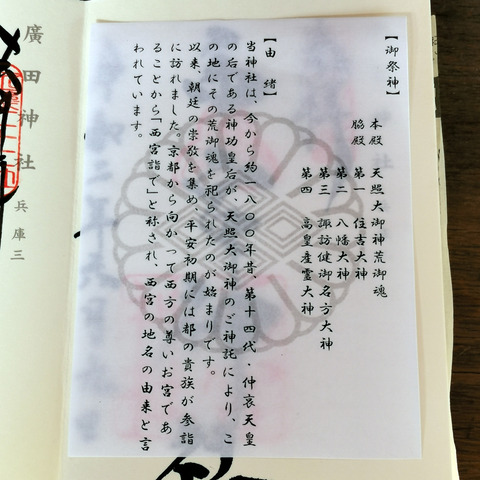 【御祭神】
本殿 天照大御神荒御魂
脇殿 第一 住吉大神
第二 八幡大神
第三 諏訪健御名方大神
第四 高皇産霊大神
【由緒】
当神社は、今から約一八〇〇年昔、第十四代・仲哀天皇
の后である神功皇后が、天照大御神のご神託により、こ
の地にその荒御魂を祀られたのが始まりです。
以来、朝廷の崇敬を集め、平安初期には都の貴族が参詣
に訪れました。京都から向かって西方の尊いお宮であ
ることから「西宮詣で」と称され、西宮の地名の由来と言
われています。
廣田神社 兵庫三